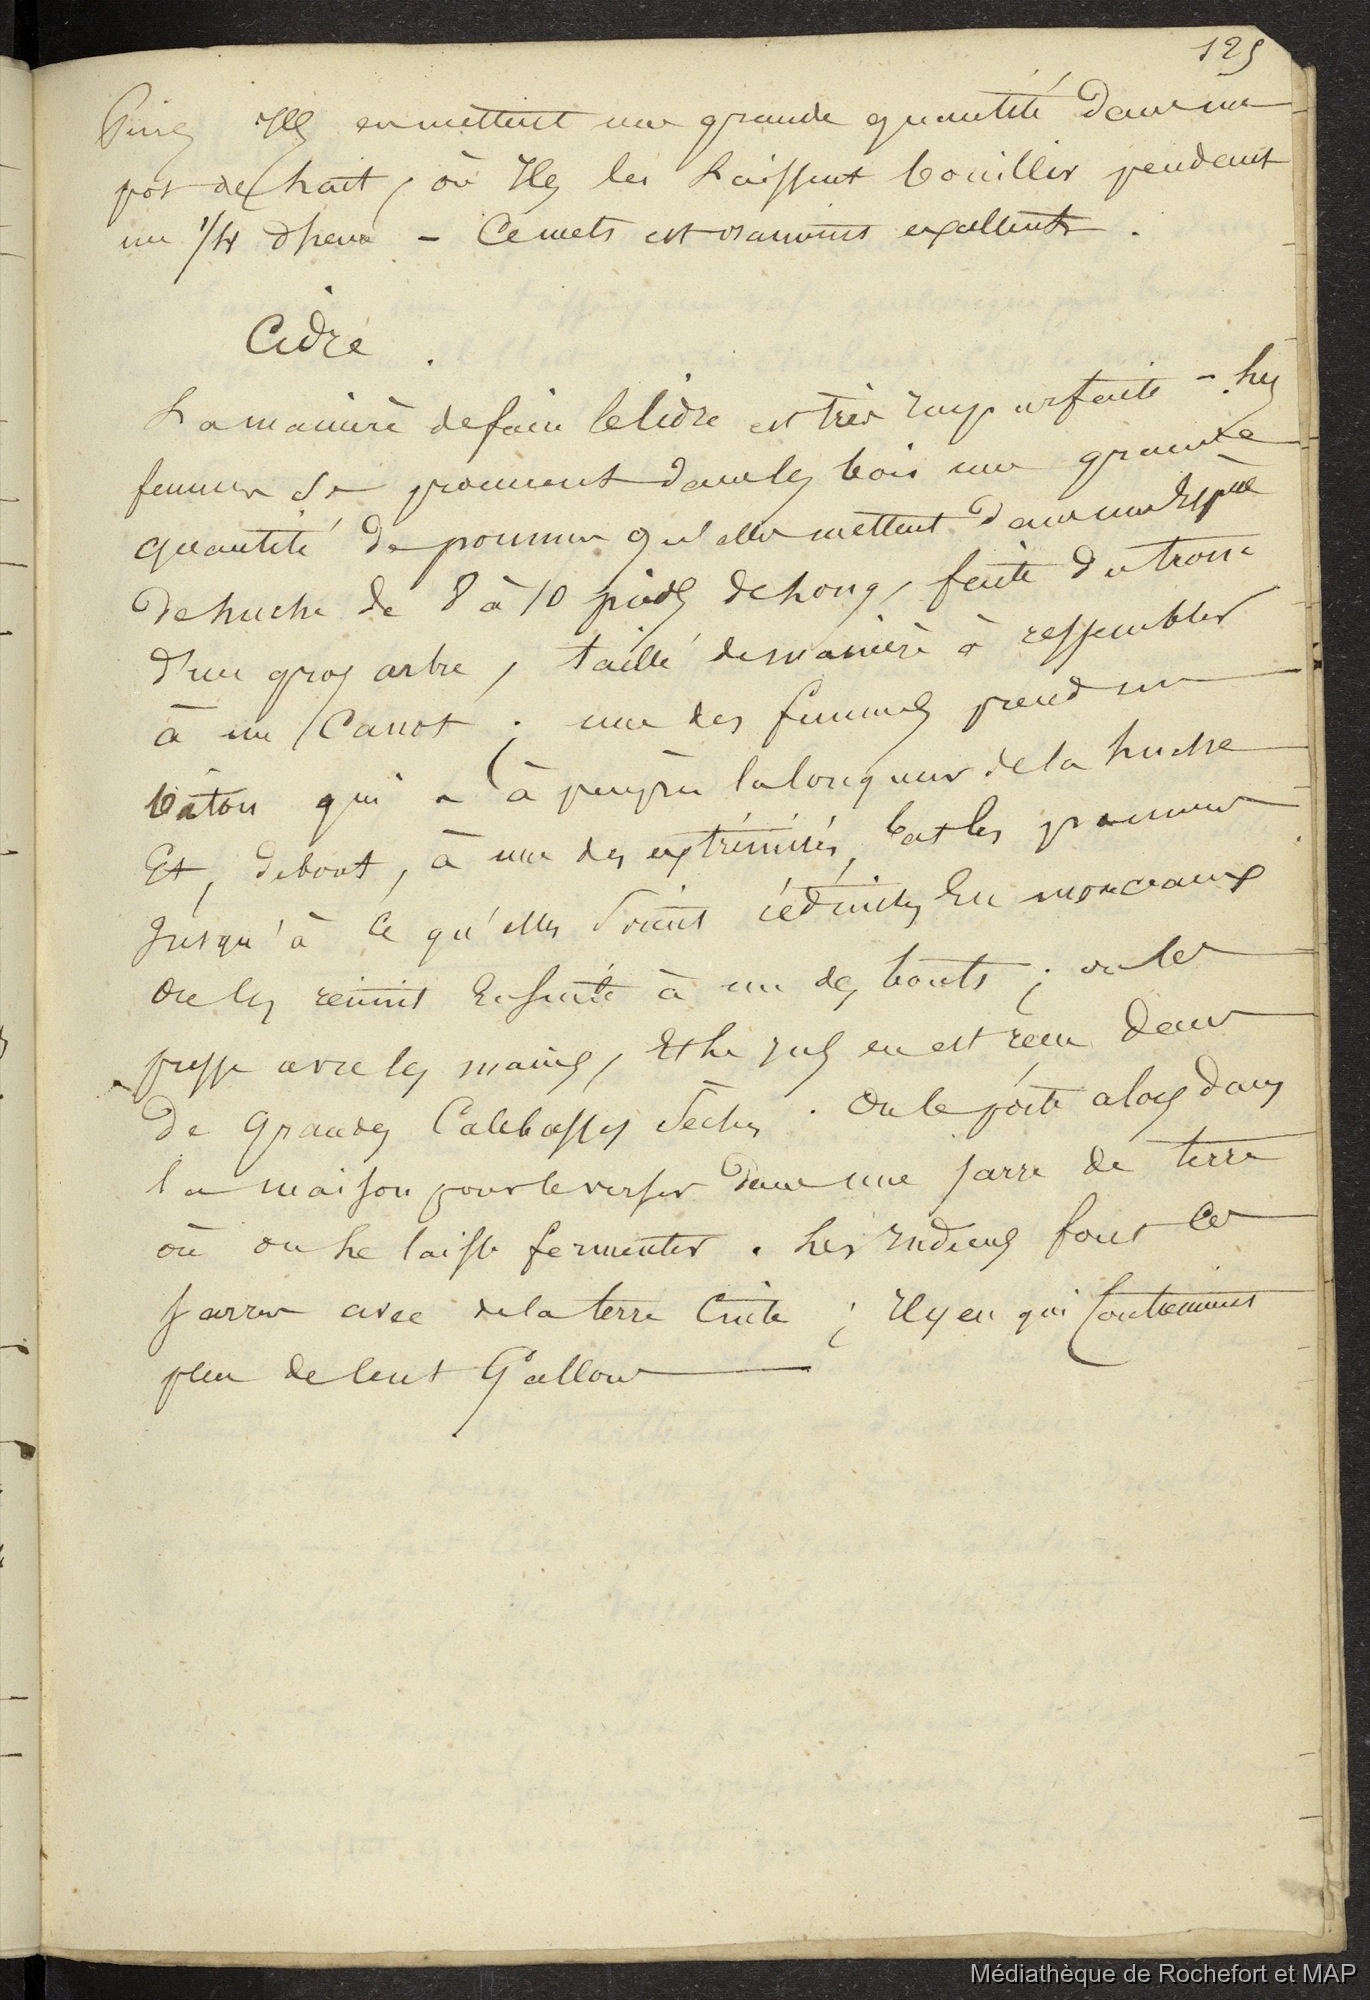 125
Puis Ils en mettent une grande quantité dans un
pot de lait, où Ils les Laissent bouillir pendant
un 1/4 d'heure - Ce mets est vraiment excellent .
Cidre .
La manière de faire le Cidre est très Imparfaite - les
femmes se procurent dans les bois une grande
quantité de pommes qu'elles mettent dans une Espèce
De huche de 8 à 10 pieds de Long, faite du tronc
d'un gros arbre, taillé de manière à ressembler
à un Canot ; une des femmes prend un
bâton qui a à peu près la longueur de la huche
Et, debout, à une des extrémités, bat les pommes
Jusqu'à ce qu'elles soient réduites En morceaux
On les réunit Ensuite à un des bouts ; on les
presse avec les mains, Et le jus en est reçu dans
De Grandes Calebasses Sèches . On le porte alors dans
la maison pour le verser dans une jarre de terre
où on le laisse fermenter . Les Indiens font ces
Jarres avec de la terre Cuite ; Il y en qui Contiennent
plus de Cent Gallons
Médiathèque de Rochefort et MAP